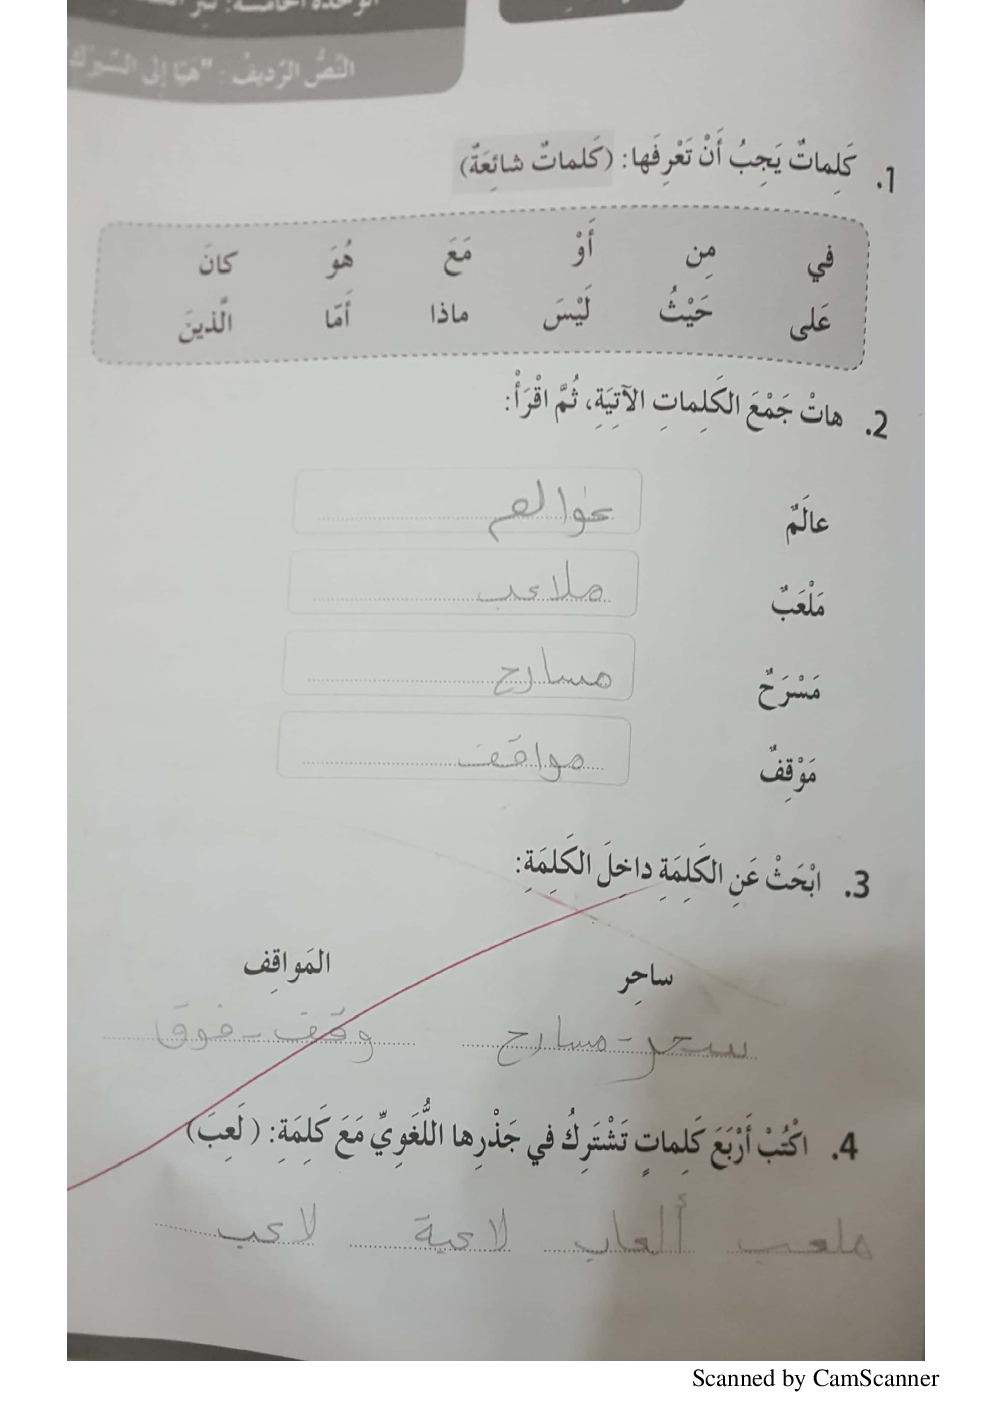 النَّصُّ الرَّديفُ: "هَيّا إِلى السّيرك
1. كَلِماتٌ يَجِبُ أَنْ تَعْرِفَها: (كَلماتٌ شائِعَةٌ)
في مِن أَوْ مَعَ هُوَ كانَ
عَلى حَيْثُ لَيْسَ ماذا أَمّا الَّذينَ
2. هاتْ جَمْعَ الكَلِماتِ الآتِيَةِ، ثُمَّ اقْرَأْ:
عالَمٌ عوالم
مَلْعَبٌ ملاعب
مَسْرَحٌ مسارح
مَوْقِفٌ مواقف
3. ابْحَثْ عَنِ الكَلِمَةِ داخِلَ الكَلِمَةِ:
ساحِر المَواقِف
سحر - مسارح وقف - فوق
4. اكْتُبْ أَرْبَعَ كَلِماتٍ تَشْتَرِكُ في جَذْرِها اللُّغَوِيِّ مَعَ كَلِمَةِ: (لَعِبَ)
ملعب ألعاب لاعبة لاعب
Scanned by CamScanner